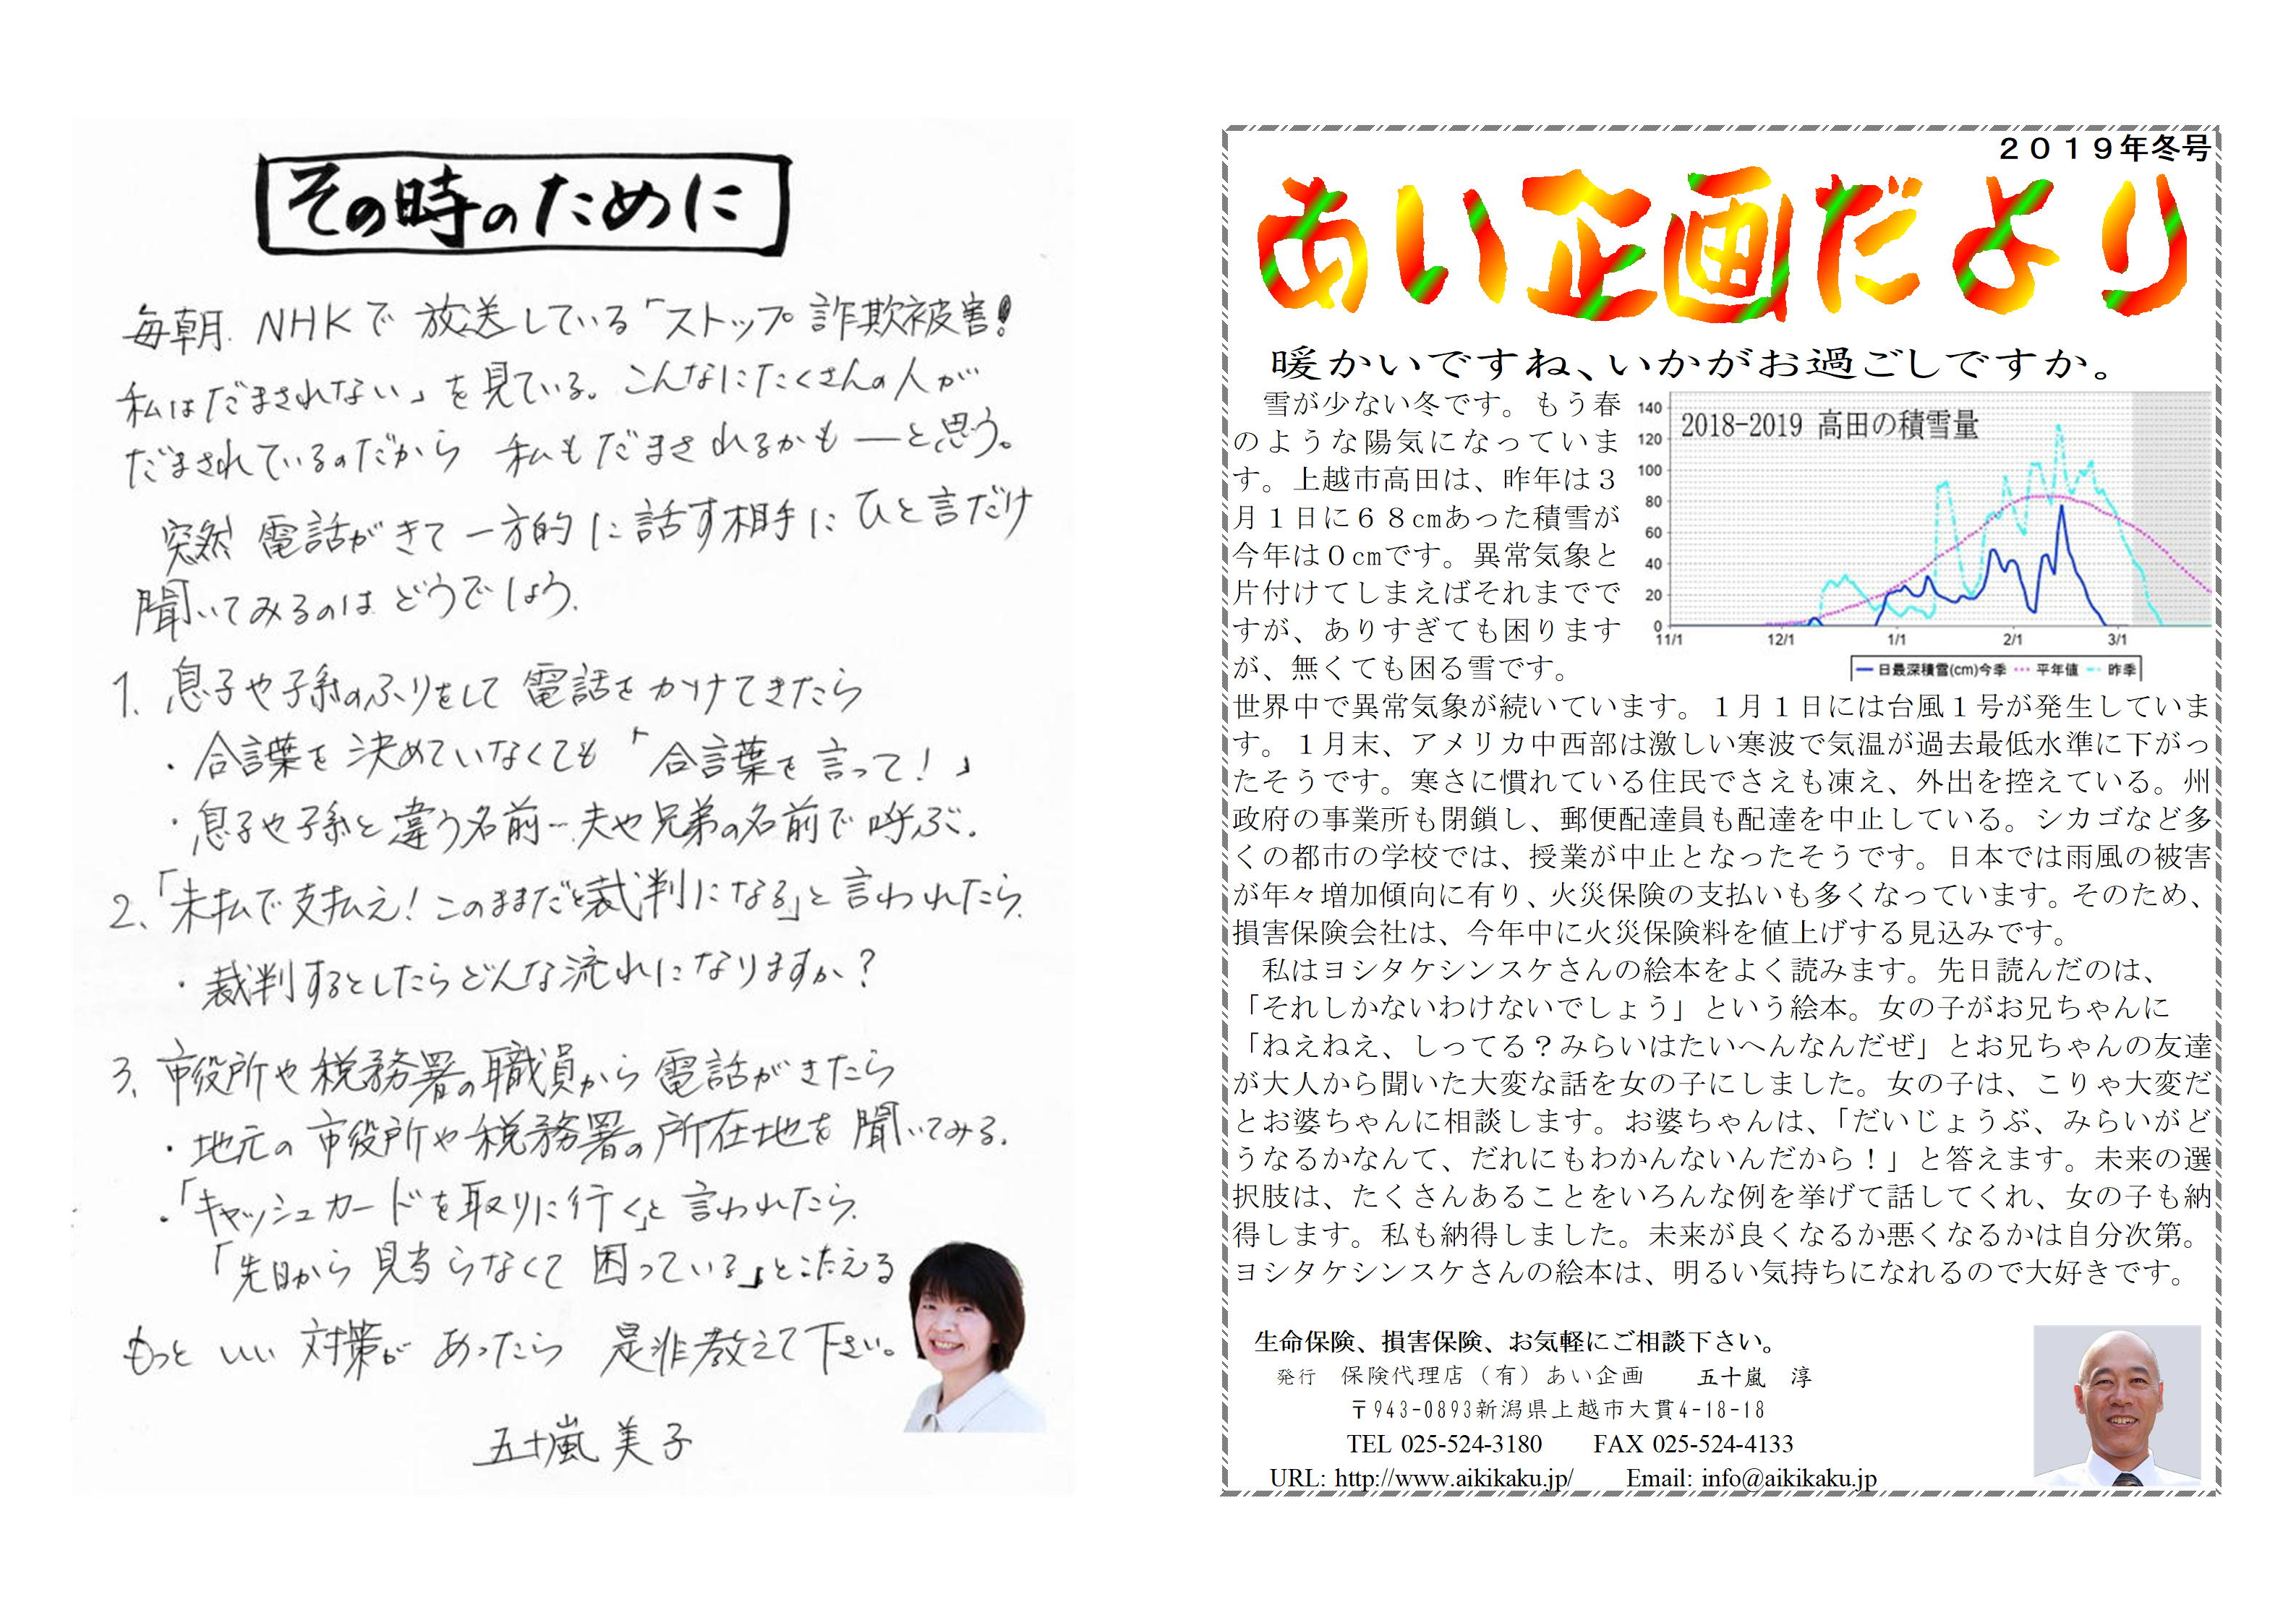 その時のために
毎朝、NHKで放送している「ストップ詐欺被害!
私はだまされない」を見ている。こんなにたくさんの人が
だまされているのだから 私もだまされるかも―と思う。
突然 電話がきて一方的に話す相手にひと言だけ
聞いてみるのはどうでしょう。
1. 息子や子孫のふりをして電話をかけてきたら
・合言葉を決めていなくても「合言葉を言って!」
・息子や子孫と違う名前…夫や兄弟の名前で呼ぶ。
2、「未払で支払え!このままだと裁判になる」と言われたら、
・裁判するとしたらどんな流れになりますか?
3、市役所や税務署の職員から電話がきたら
・地元の市役所や税務署の所在地を聞いてみる。
・「キャッシュカードを取りに行く」と言われたら、
「先日から見当らなくて困っている」とこたえる
もっといい対策があったら 是非教えて下さい。
五十嵐 美子
2019年冬号
あい企画だより
暖かいですね、いかがお過ごしですか。
雪が少ない冬です。もう春
のような陽気になっていま
す。上越市高田は、昨年は3
月1日に68cmあった積雪が
今年は0cmです。異常気象と
片付けてしまえばそれまでで
すが、ありすぎても困ります
が、無くても困る雪です。
2018-2019 高田の積雪量
140
120
100
80
60
40
20
0
11/1 12/1 1/1 2/1 3/1
日最深積雪(cm)今季 平年値 昨季
世界中で異常気象が続いています。1月1日には台風1号が発生していま
す。1月末、アメリカ中西部は激しい寒波で気温が過去最低水準に下がっ
たそうです。寒さに慣れている住民でさえも凍え、外出を控えている。州
政府の事業所も閉鎖し、郵便配達員も配達を中止している。シカゴなど多
くの都市の学校では、授業が中止となったそうです。日本では雨風の被害
が年々増加傾向に有り、火災保険の支払いも多くなっています。そのため、
損害保険会社は、今年中に火災保険料を値上げする見込みです。
私はヨシタケシンスケさんの絵本をよく読みます。先日読んだのは、
「それしかないわけないでしょう」という絵本。女の子がお兄ちゃんに
「ねえねえ、しってる?みらいはたいへんなんだぜ」とお兄ちゃんの友達
が大人から聞いた大変な話を女の子にしました。女の子は、こりゃ大変だ
とお婆ちゃんに相談します。お婆ちゃんは、「だいじょうぶ、みらいがど
うなるかなんて、だれにもわかんないんだから!」と答えます。未来の選
択肢は、たくさんあることをいろんな例を挙げて話してくれ、女の子も納
得します。私も納得しました。未来が良くなるか悪くなるかは自分次第。
ヨシタケシンスケさんの絵本は、明るい気持ちになれるので大好きです。
生命保険、損害保険、お気軽にご相談下さい。
発行 保険代理店(有)あい企画 五十嵐 淳
〒943-0893新潟県上越市大貫4-18-18
TEL 025-524-3180 FAX 025-524-4133
URL: http://www.aikikaku.jp/ Email: info@aikikaku.jp